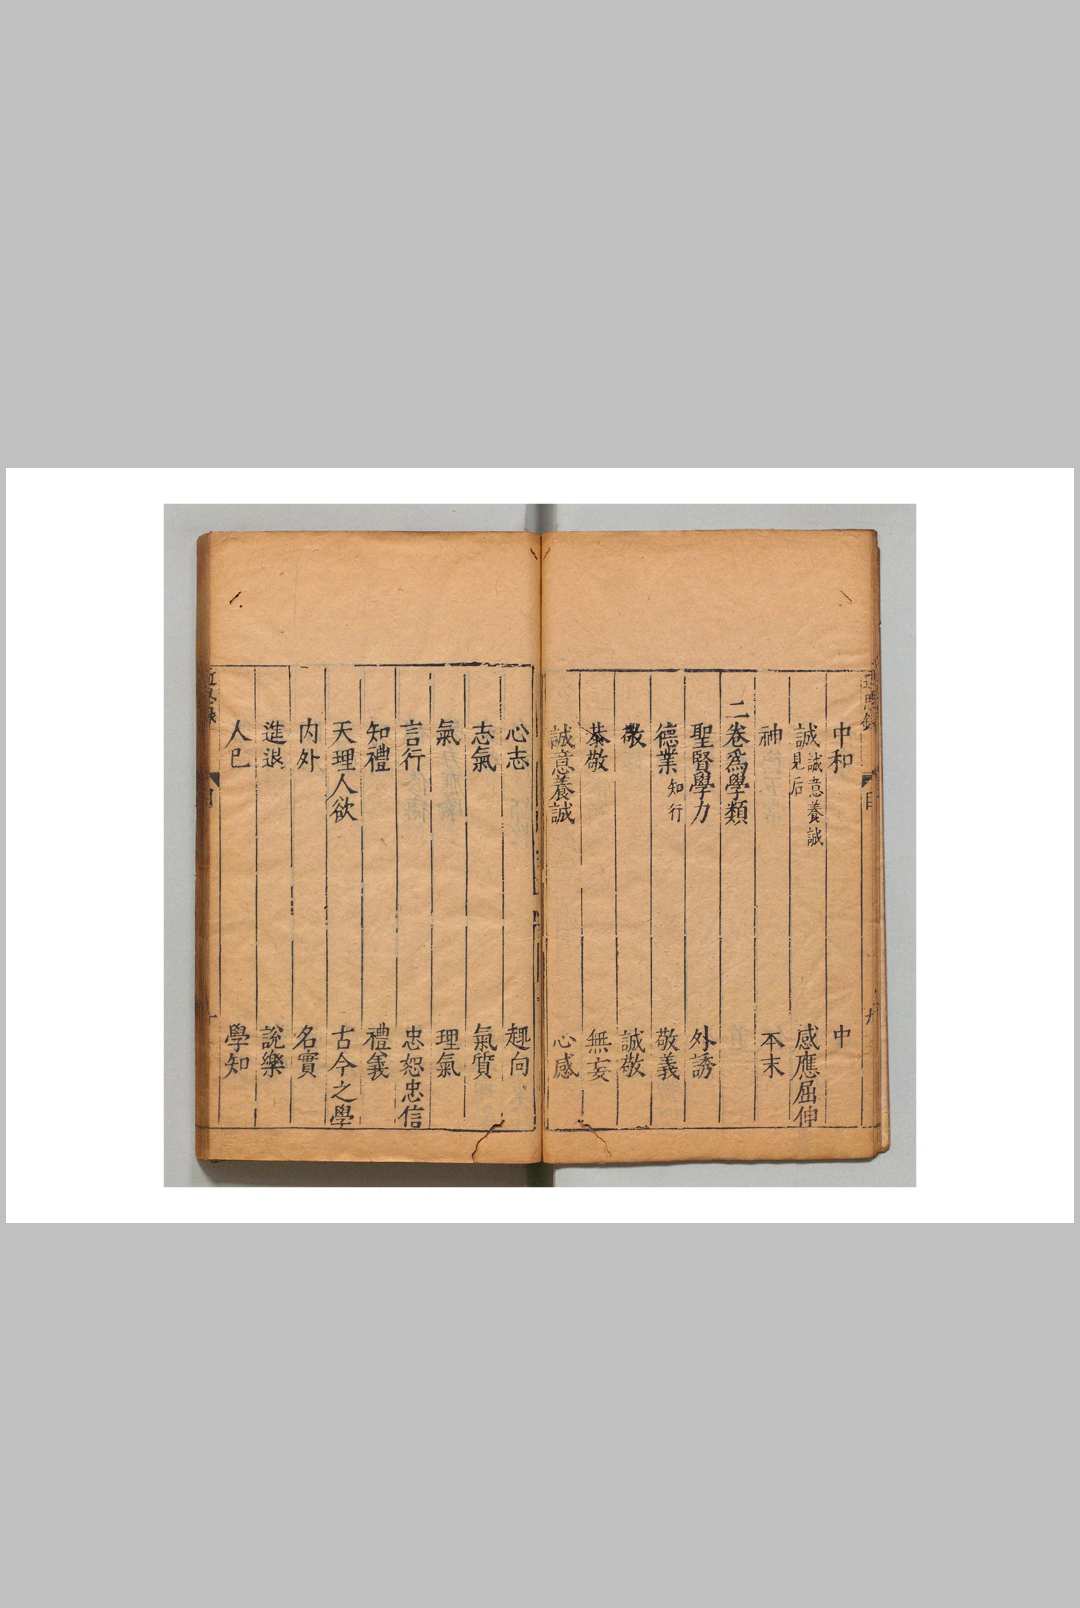 中和 中
誠 誠意養誠見后 感應屈伸
神 本末
二卷爲學類
聖賢學力 外誘
德業 知行 敬義
敬 誠敬
恭敬 無妄
誠意養誠 心感
心志 趣向
志氣 氣質
氣 理氣
言行 忠恕忠信
知禮 禮義
天理人欲 古今之學
内外 名實
進退 說樂
人己 學知